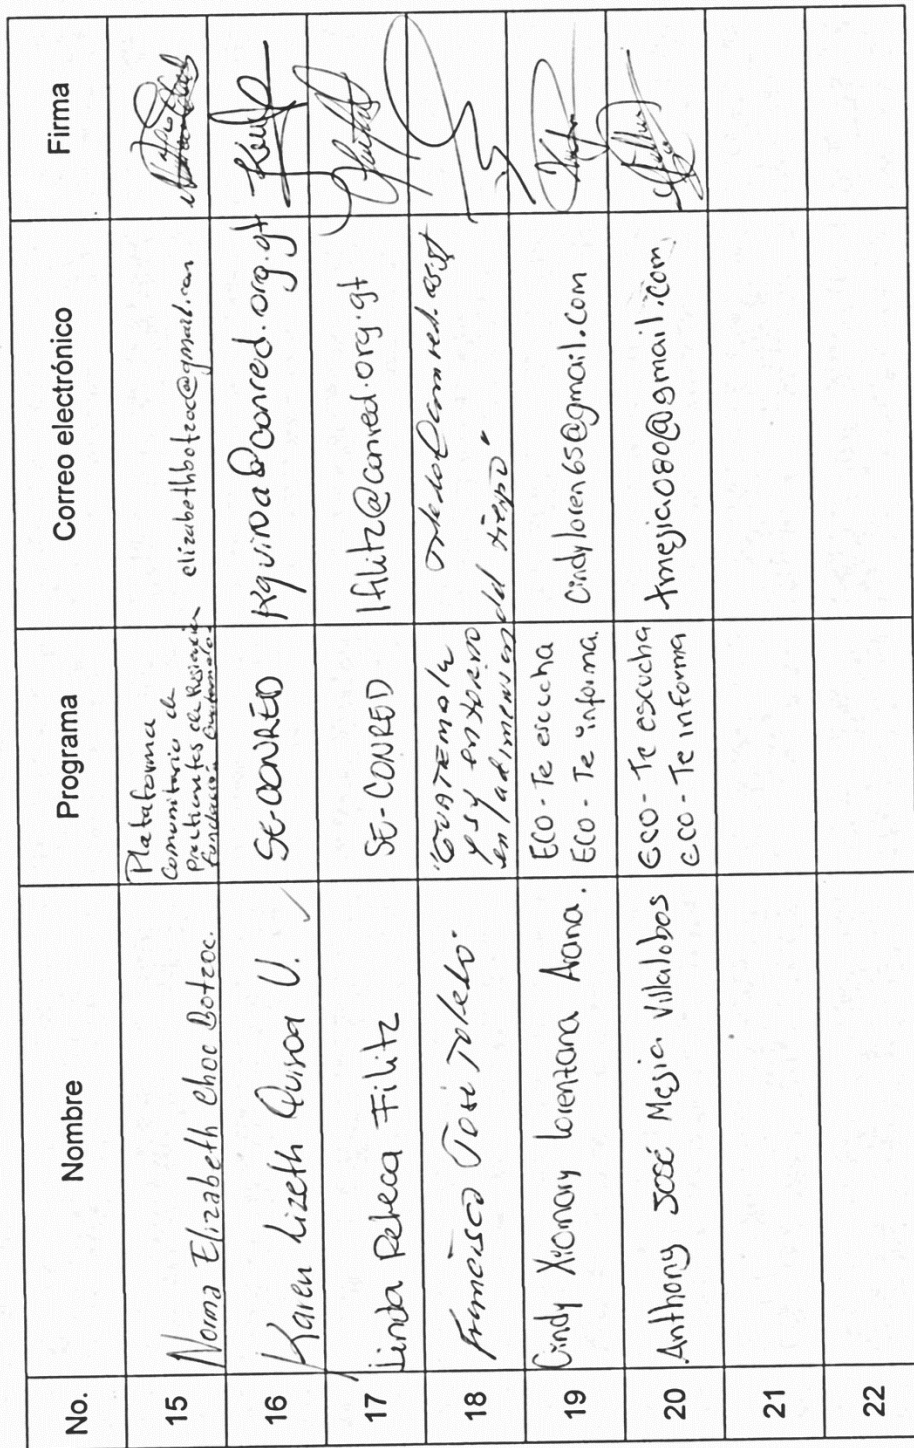 No. Nombre Programa Correo electrónico Firma
15 Norma Elizabeth Choc Botzoc. Plataforma
Comunitaria de
Practicantes de
Fundación Guatemala
elizabethbotzoc@gmail.com
16 Karen Lizeth Quiroa U. SE-CONRED kquiroa@conred.org.gt
17 Linda Rebeca Filitz SE-CONRED lfilitz@conred.org.gt
18 Francisco José Toledo. "GUATEMALA
y su entorno
en la dimension del tiempo"
19 Cindy Xiomary Lorenzana Arana. ECO-Te escucha
ECO-Te informa.
Cindyloren65@gmail.com
20 Anthony José Mejia Villalobos ECO-Te escucha
ECO-Te informa
tmejia080@gmail.com
21
22